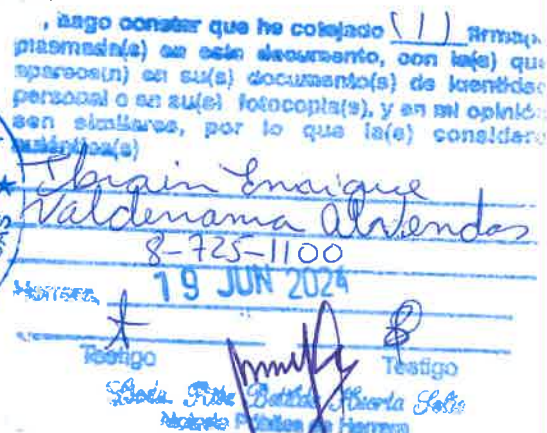 , hago constar que he cotejado (1) firma(s)
plasmada(s) en este documento, con la(s) que
aparece(n) en su(s) documento(s) de identidad
personal o en su(s) fotocopia(s), y en mi opinión
son similares, por lo que la(s) considero
auténtica(s)
Ibrain Enrique
Valderrama
8-725-1100
Herrera, 19 JUN 2024
Testigo Testigo
Licda. Rita
Notaria Pública de Herrera